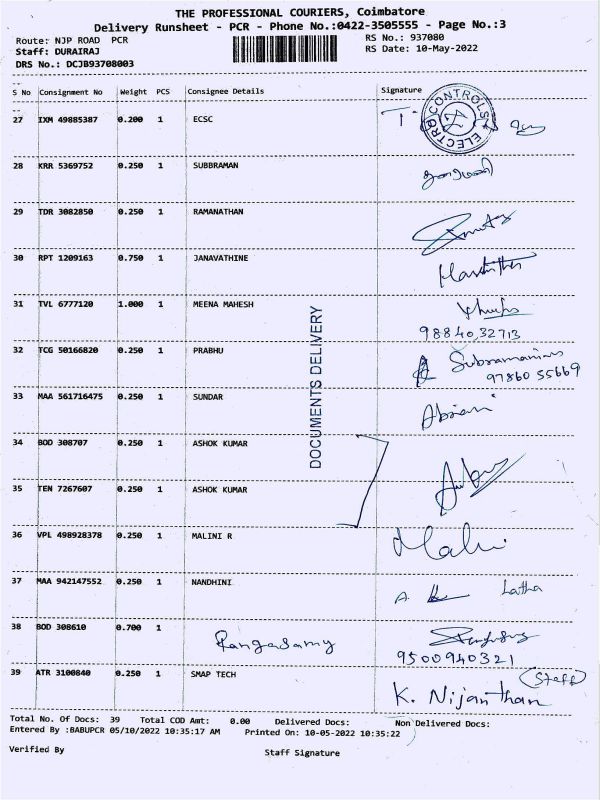 THE PROFESSIONAL COURIERS, Coimbatore
Delivery Runsheet - PCR - Phone No.:0422-3505555 - Page No.:3
Route: NJP ROAD PCR
RS No.: 937080
Staff: DURAIRAJ
RS Date: 10-May-2022
DRS No.: DCJB93708003
S No Consignment No Weight PCS Consignee Details Signature
27 IXM 49885387 0.200 1 ECSC
CONTROLS ELECTRO
28 KRR 5369752 0.250 1 SUBBRAMAN
29 TDR 3082850 0.250 1 RAMANATHAN
30 RPT 1209163 0.750 1 JANAVATHINE
31 TVL 6777120 1.000 1 MEENA MAHESH
9884032713
32 TCG 50166820 0.250 1 PRABHU Subramanian
97860 55669
33 MAA 561716475 0.250 1 SUNDAR
DOCUMENTS DELIVERY
34 BOD 308707 0.250 1 ASHOK KUMAR
35 TEN 7267607 0.250 1 ASHOK KUMAR
36 VPL 498928378 0.250 1 MALINI R
37 MAA 942147552 0.250 1 NANDHINI Latha
38 BOD 308610 0.700 1 Rangasamy
9500940321
39 ATR 3100840 0.250 1 SMAP TECH (Staff)
K. Nijanthan
Total No. Of Docs: 39 Total COD Amt: 0.00 Delivered Docs: Non Delivered Docs:
Entered By :BABUPCR 05/10/2022 10:35:17 AM Printed On: 10-05-2022 10:35:22
Verified By Staff Signature